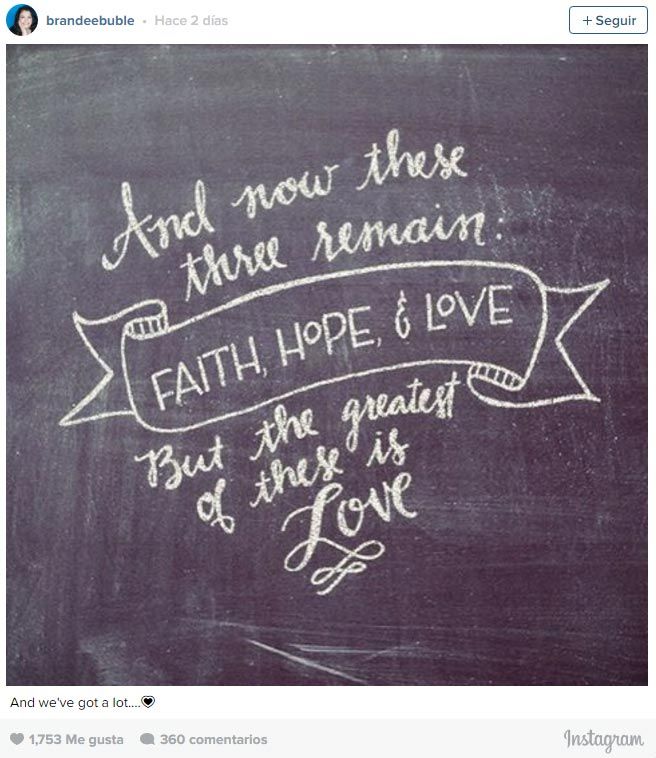 brandeebuble • Hace 2 días
+ Seguir
And now these
three remain:
FAITH, HOPE, & LOVE
But the greatest
of these is
Love
And we've got a lot....🖤
1,753 Me gusta 360 comentarios
Instagram